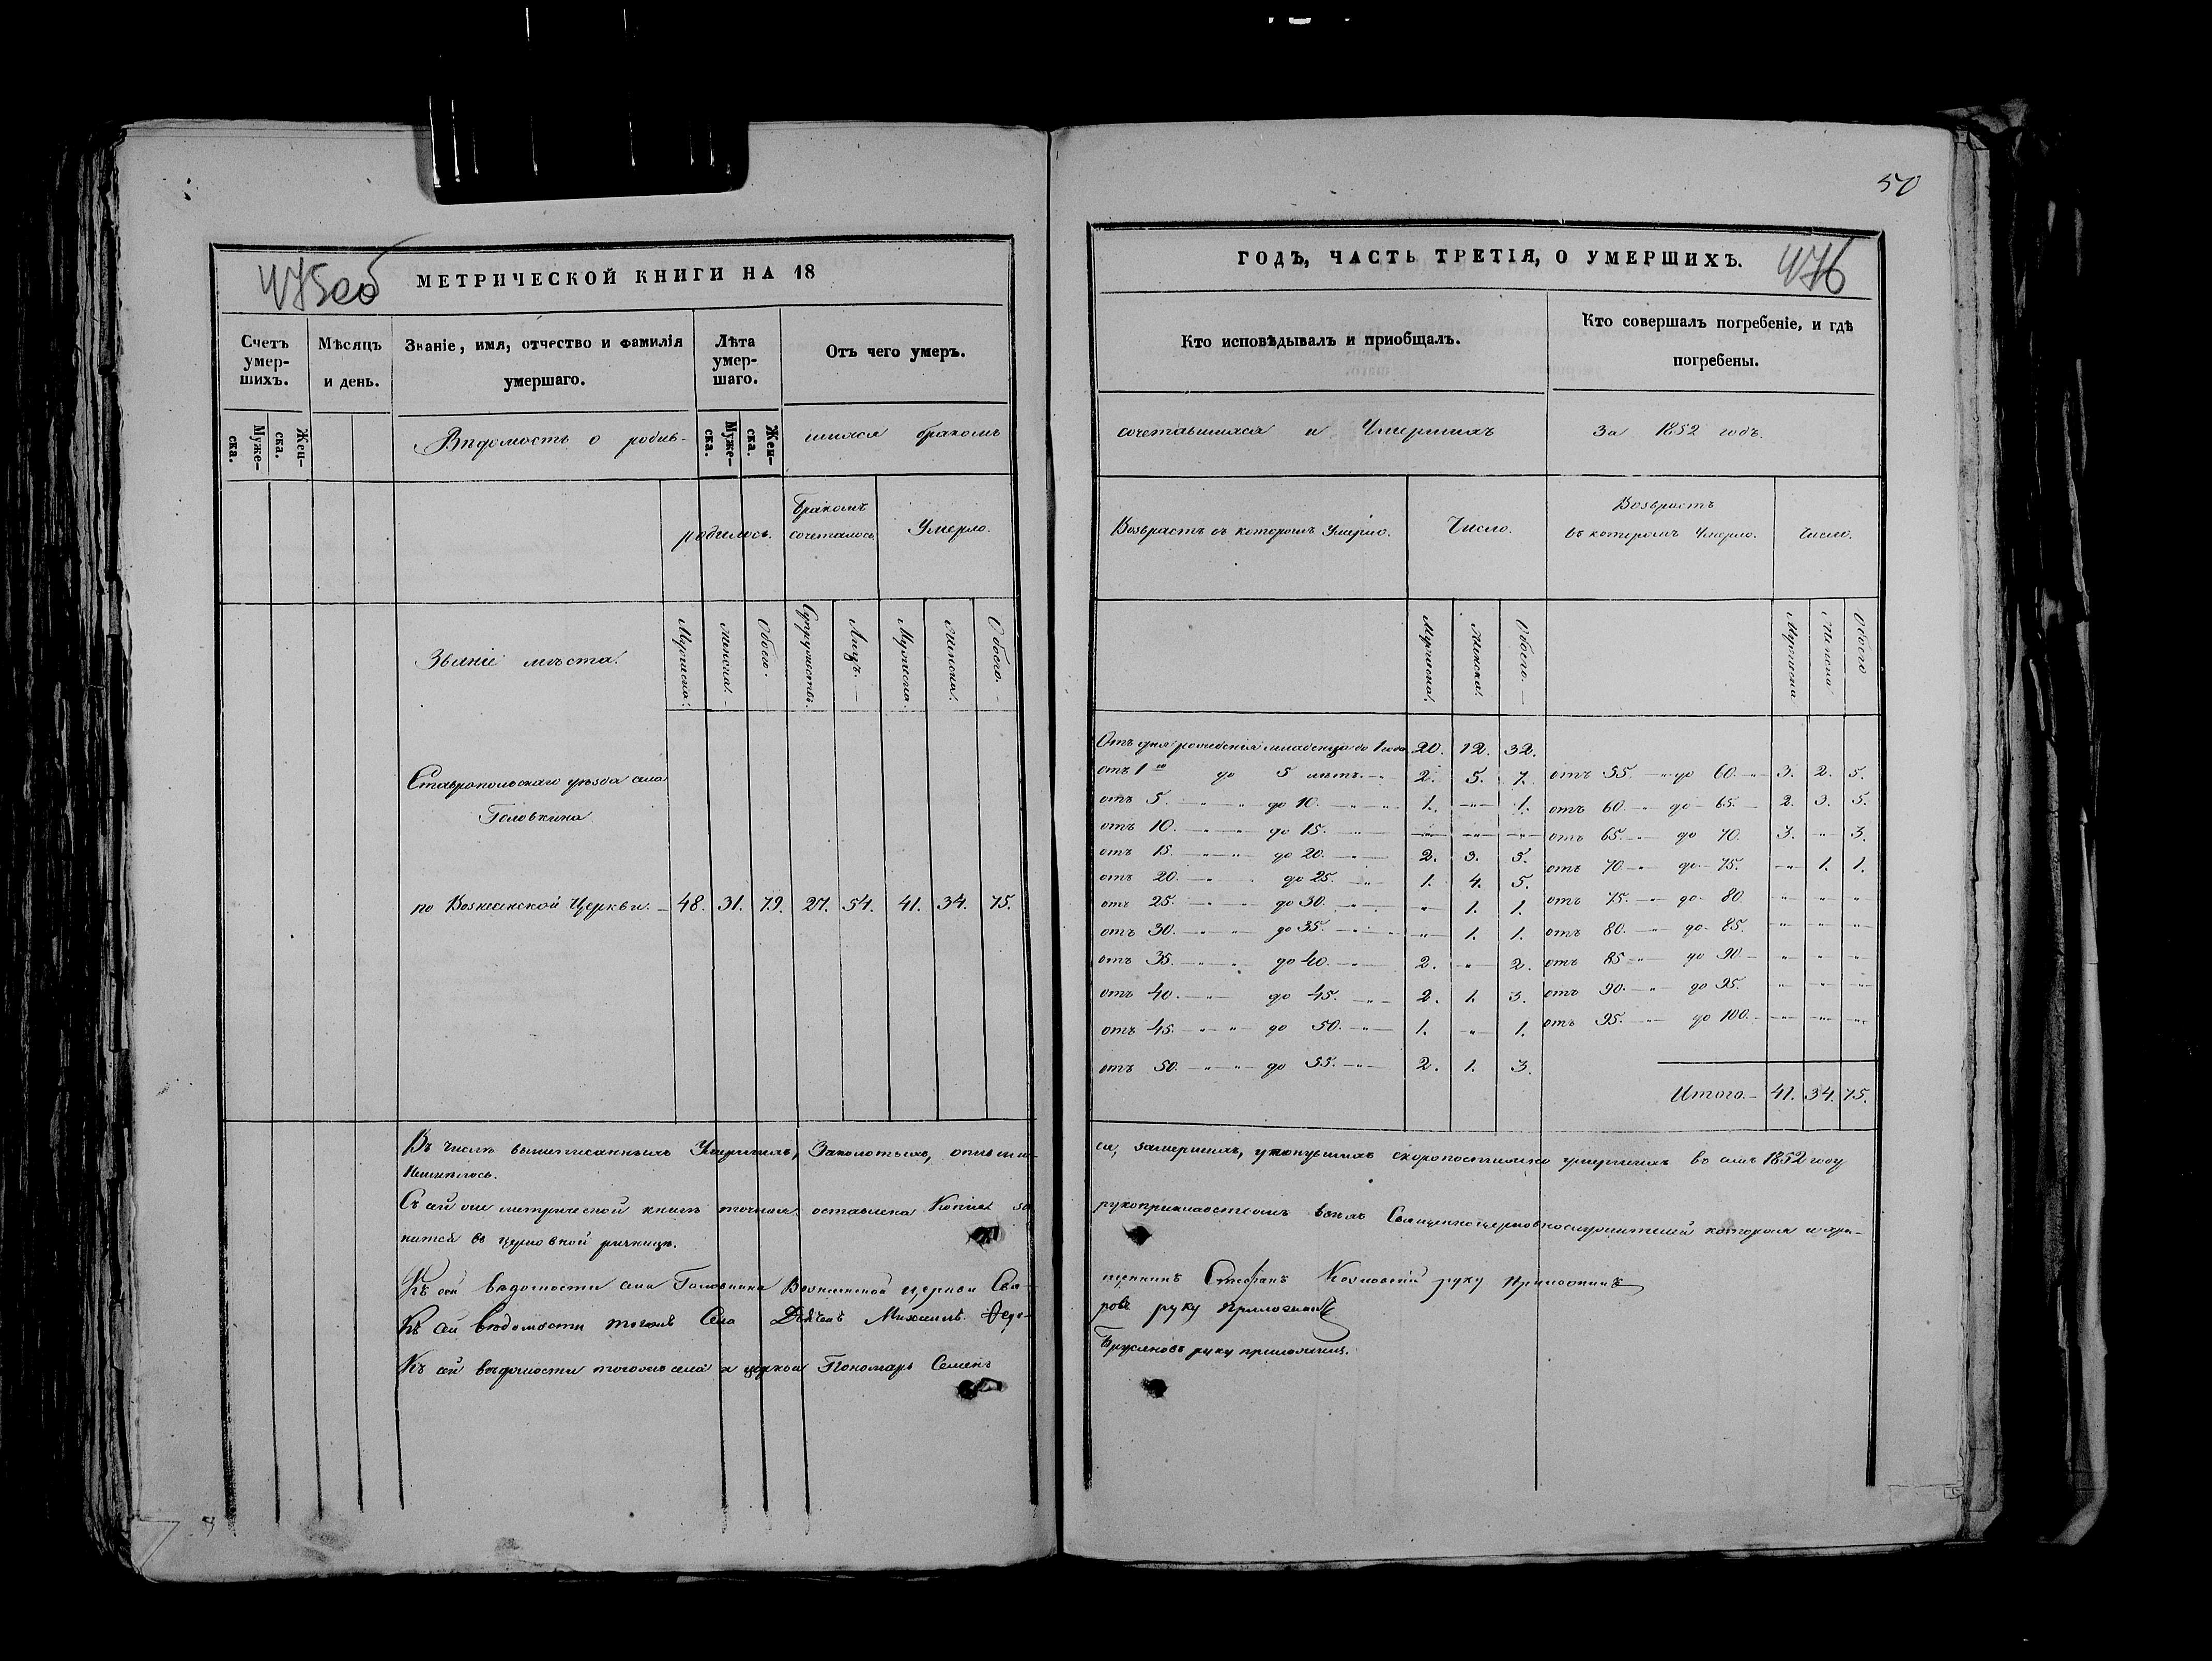 50
475об
МЕТРИЧЕСКОЙ КНИГИ НА 18
Счетъ умер-шихъ.
Мѣсяцъ и день.
Званіе, имя, отчество и фамилія умершаго.
Лѣта умер-шаго.
Отъ чего умеръ.
Муже-ска.
Жен-ска.
Муже-ска.
Жен-ска.
Вѣдомость о родив-
шихся бракомъ
родилось.
Бракомъ сочеталось
Умерло.
Званіе мѣста.
Мужеска.
Женска.
Обоего.
Супружествъ.
Лицъ.
Мужеска.
Женска.
Обоего.
Ставропольскаго уѣзда села
Головкина
по Вознесенской Церкви. 48. 31. 79. 27. 54. 41. 34. 75.
Въ числѣ вышеписанныхъ Умершихъ, Заколотыхъ, опивших-
Неимѣлось.
Съ сей же метрической книги точная оставлена Копія за
нится въ церковной ризницѣ.
Къ сей вѣдомости села Головкина Вознесенской церкви Свя-
Къ сей вѣдомости тогожъ Села Дьячекъ Михаилъ Федо-
Къ сей вѣдомости тогожъ села и церкви Пономарь Семенъ
ГОДЪ, ЧАСТЬ ТРЕТІЯ, О УМЕРШИХЪ.
476
Кто исповѣдывалъ и пріобщалъ.
Кто совершалъ погребеніе, и гдѣ погребены.
сочетавшихся и Умершихъ
За 1852 годъ.
Возврастъ въ которомъ Умерло.
Число.
Возврастъ
въ которомъ Умерло.
Число.
Мужеска.
Женска.
Обоего.
Мужеска
Женска
Обоего
Отъ дня рожденія младенца до 1 года 20. 12. 32.
отъ 1го до 5 лѣтъ. 2. 5. 7. отъ 55. до 60. 3. 2. 5.
отъ 5. до 10. 1. " 1. отъ 60. до 65. 2. 3. 5.
отъ 10. до 15. " " " отъ 65. до 70. 3. " 3.
отъ 15. до 20. 2. 3. 5. отъ 70 до 75. " 1. 1.
отъ 20. до 25. 1. 4. 5.
отъ 25. до 30. " 1. 1. отъ 75. до 80. " " "
отъ 30. до 35. " 1. 1. отъ 80. до 85. " " "
отъ 35. до 40. 2. " 2. отъ 85 до 90 " " "
отъ 40. до 45. 2. 1. 3. отъ 90. до 95. " " "
отъ 45. до 50. 1. " 1. отъ 95. до 100. " " "
отъ 50. до 55. 2. 1. 3.
Итого. 41. 34. 75.
ся, замерзшихъ, утонувшихъ скоропостижно умершихъ въ семъ 1852 году
рукоприкладствомъ всѣхъ Священноцерковнослужителей которая и хра-
щенникъ Стефанъ руку приложилъ
ровъ руку приложилъ
руку приложилъ.